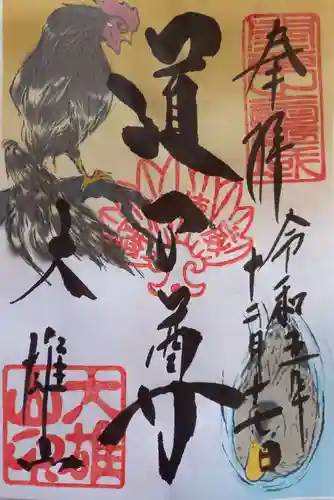 奉拝
令和五年
十二月十七日
道了尊
大雄山